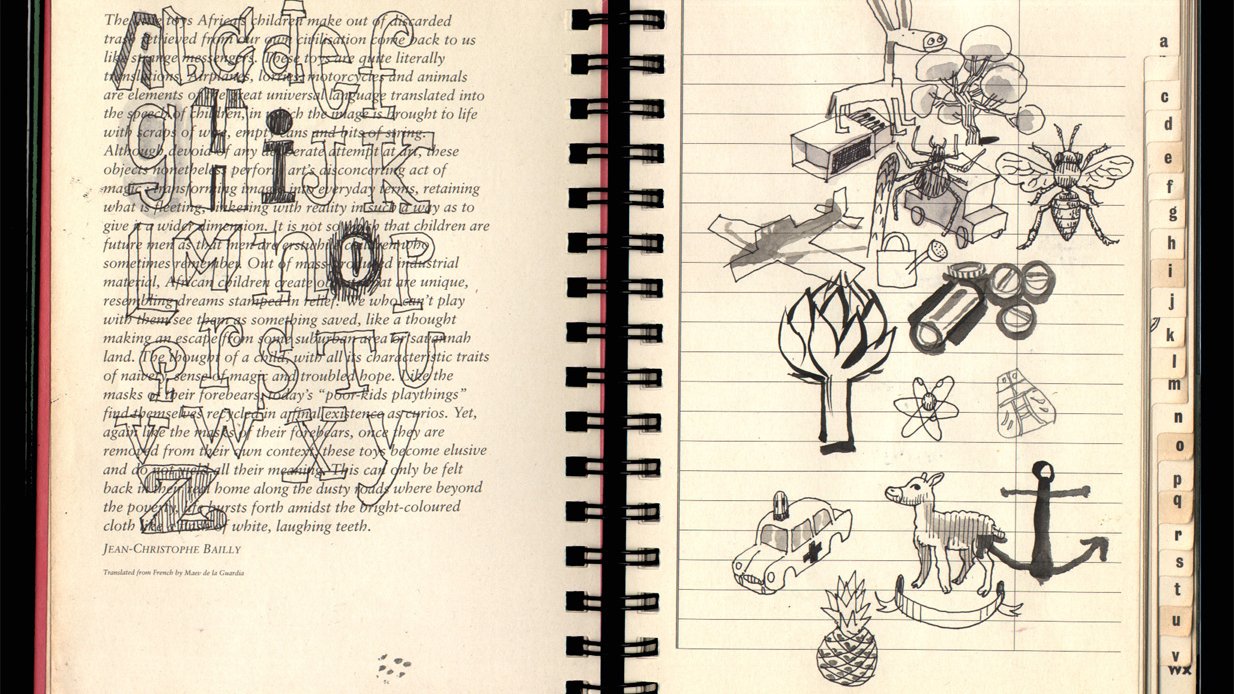 The wire toys Africa's children make out of discarded
trash retrieved from our own civilisation come back to us
like strange messengers. These toys are quite literally
translations. Airplanes, lorries, motorcycles and animals
are elements of the great universal language translated into
the speech of children, in which the image is brought to life
with scraps of wire, empty cans and bits of string.
Although devoid of any deliberate attempt at art, these
objects nonetheless perform art's disconcerting act of
magic, transforming images into everyday terms, retaining
what is fleeting, tinkering with reality in such a way as to
give it a wider dimension. It is not so much that children are
future men as that men are erstwhile children who
sometimes remember. Out of mass-produced industrial
material, African children create objects that are unique,
resembling dreams stamped in relief. We who can't play
with them see them as something saved, like a thought
making an escape from some suburban area or savannah
land. The thought of a child, with all its characteristic traits
of naivety, sense of magic and troubled hope. Like the
masks of their forebears, today's "poor-kids playthings"
find themselves recycled in a final existence as curios. Yet,
again like the masks of their forebears, once they are
removed from their own context, these toys become elusive
and do not yield all their meaning. This can only be felt
back in their real home along the dusty roads where beyond
the poverty, life bursts forth amidst the bright-coloured
cloth like a flash of white, laughing teeth.
JEAN-CHRISTOPHE BAILLY
Translated from French by Maev de la Guardia
A b c d e f
g H i J K
L M N O P
Q R S T U
V W X Y
Z
a
c
d
e
f
g
h
i
j
k
l
m
n
o
p
q
r
s
t
u
v
wx